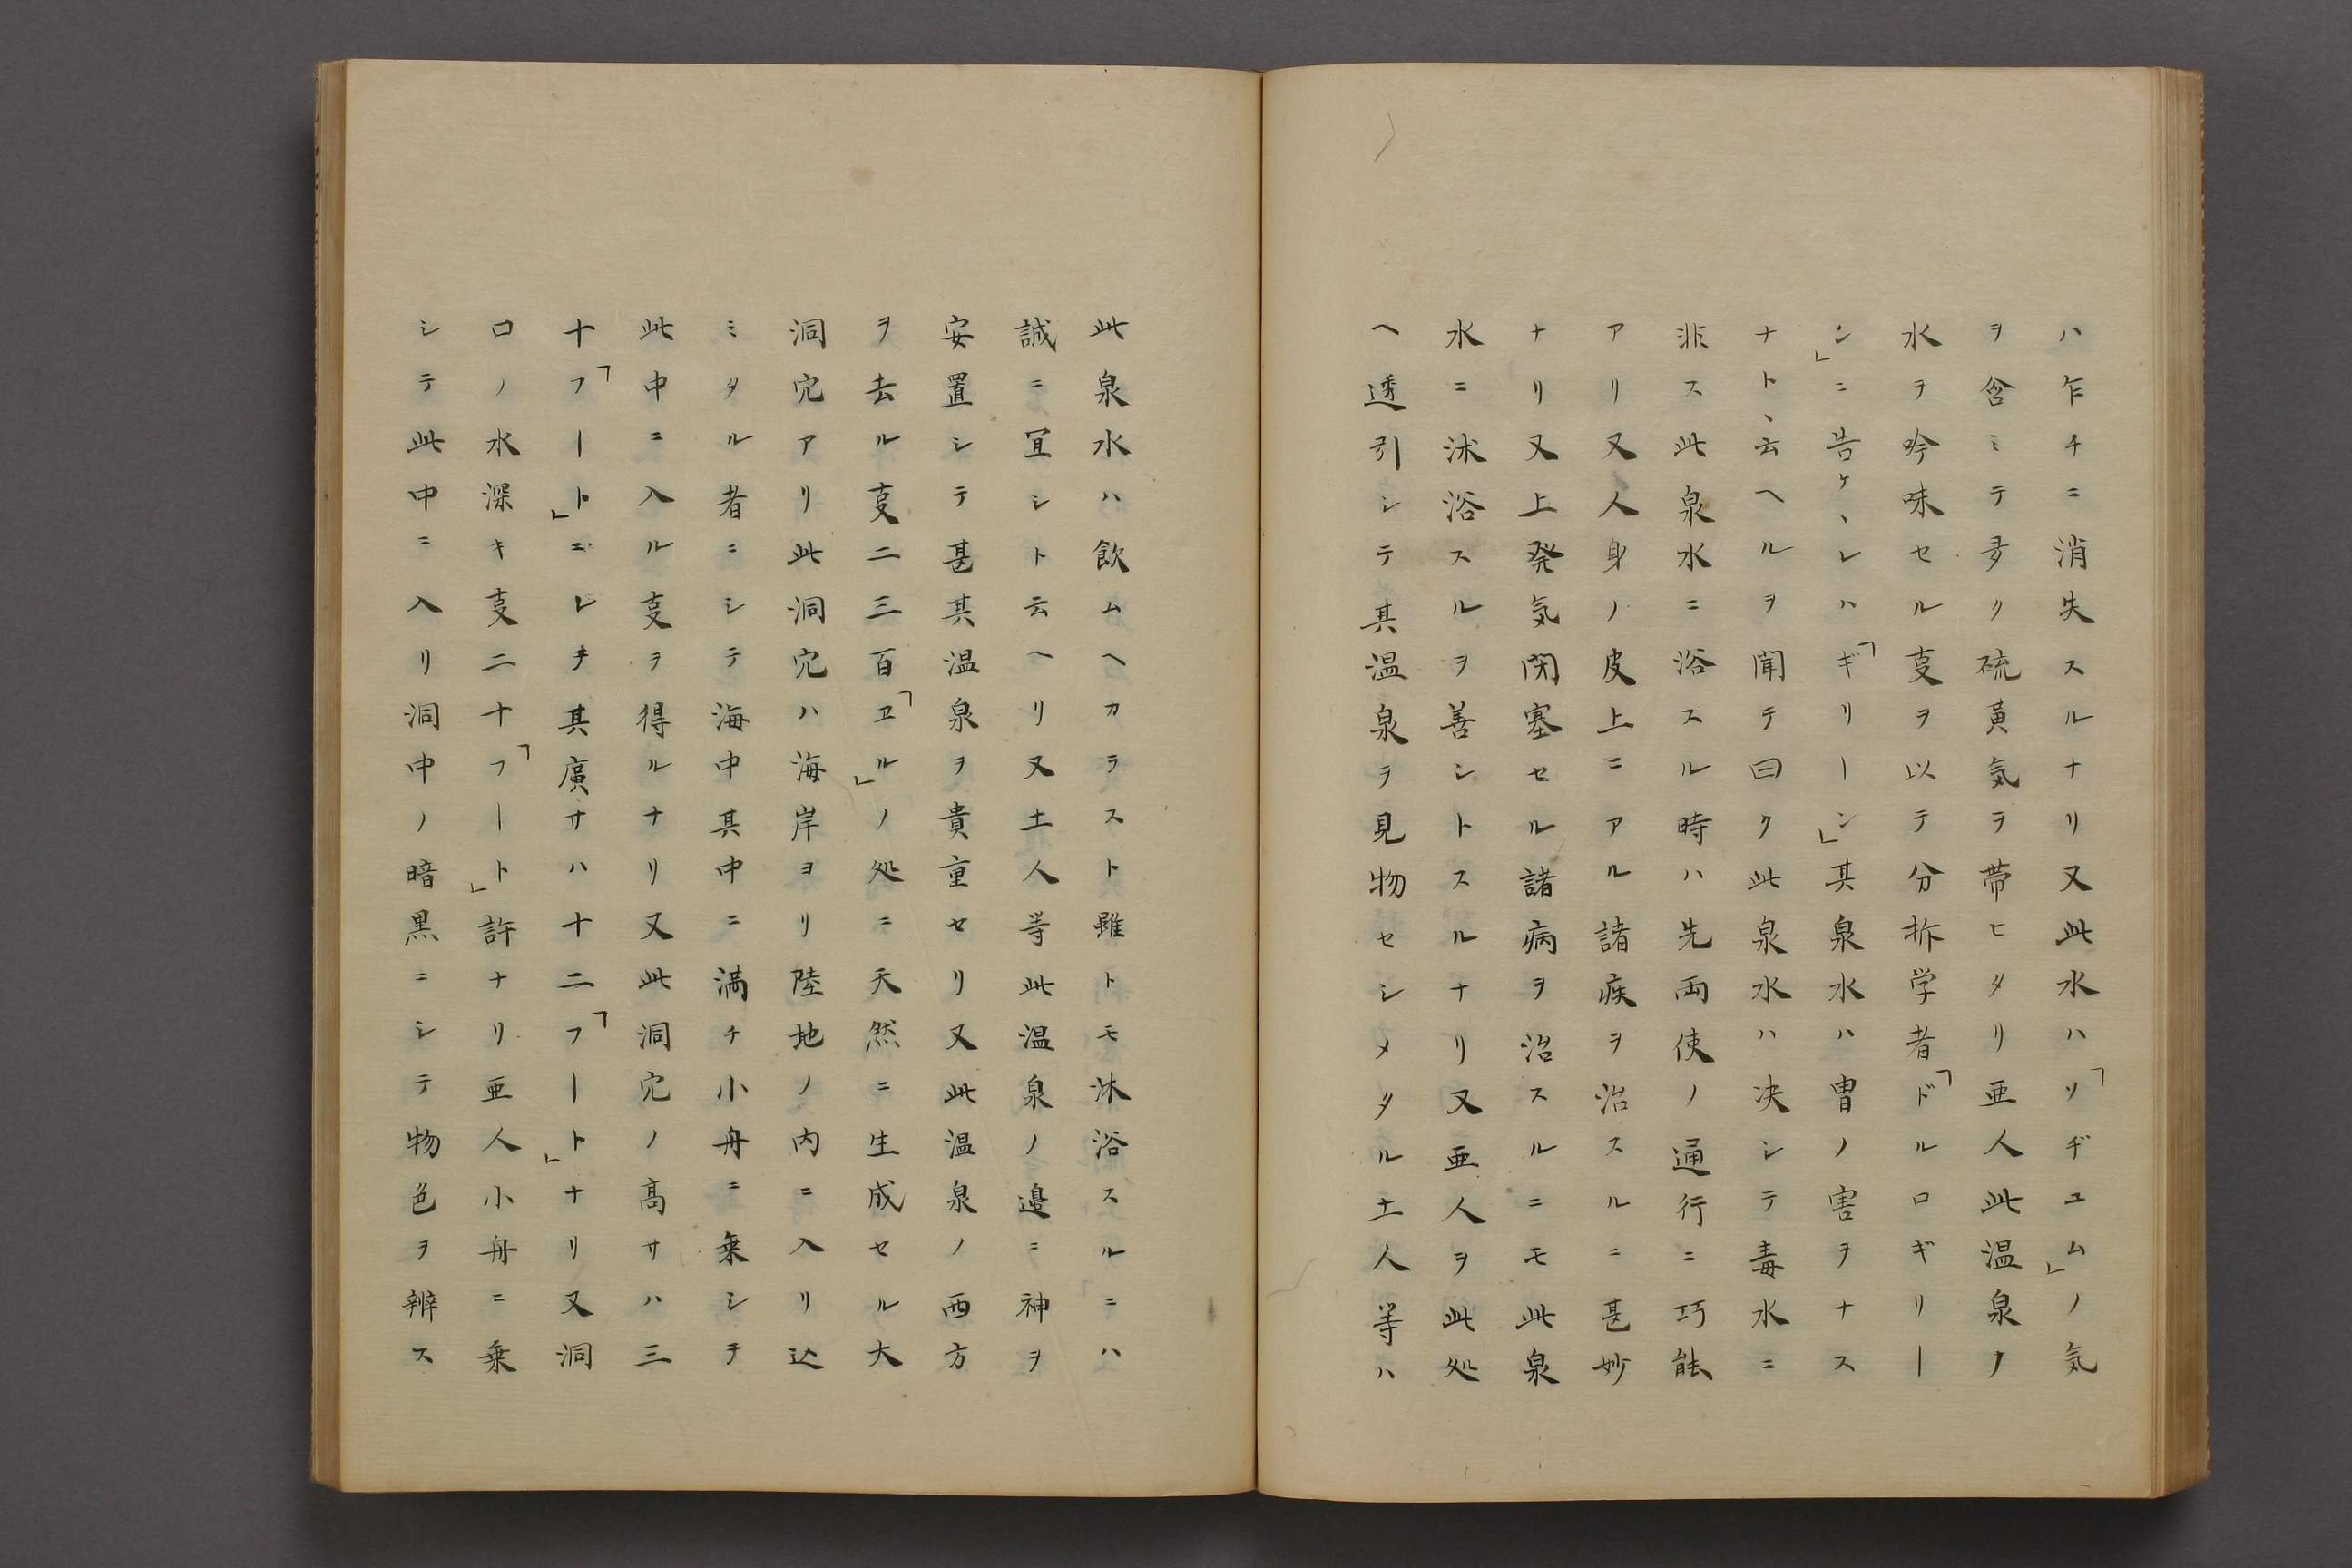 ハ乍チニ消失スルナリ又此水ハ「ソヂユム」ノ気
ヲ含ミテ多ク硫黄気ヲ帯ヒタリ亜人此温泉ノ
水ヲ吟味セル㕝ヲ以テ分拆学者「ドルロギリー
ン」ニ告ケヽレハ「ギリーン」其泉水ハ曽ノ害ヲナス
ナトヽ云ヘルヲ聞テ曰ク此泉水ハ决シテ毒水ニ
非ス此泉水ニ浴スル時ハ先両使ノ通行ニ巧能
アリ又人身ノ皮上ニアル諸疾ヲ治スルニ甚妙
ナリ又上発気閉塞セル諸病ヲ治スルニモ此泉
水ニ沐浴スルヲ善シトスルナリ又亜人ヲ此処
ヘ透引シテ其温泉ヲ見物セシメタル土人等ハ
此泉水ハ飲ムヘカラスト雖トモ沐浴スルニハ
誠ニ宜シト云ヘリ又土人等此温泉ノ邉ニ神ヲ
安置シテ甚其温泉ヲ貴重セリ又此温泉ノ西方
ヲ去ル㕝二三百「ヱル」ノ処ニ天然ニ生成セル大
洞穴アリ此洞穴ハ海岸ヨリ陸地ノ内ニ入リ込
ミタル者ニシテ海中其中ニ満チ小舟ニ乗シテ
此中ニ入ル㕝ヲ得ルナリ又此洞穴ノ高サハ三
十「フート」ニ乄其廣サハ十二「フート」ナリ又洞
口ノ水深キ㕝二十「フート」許ナリ亜人小舟ニ乗
シテ此中ニ入リ洞中ノ暗黒ニシテ物色ヲ辨ス